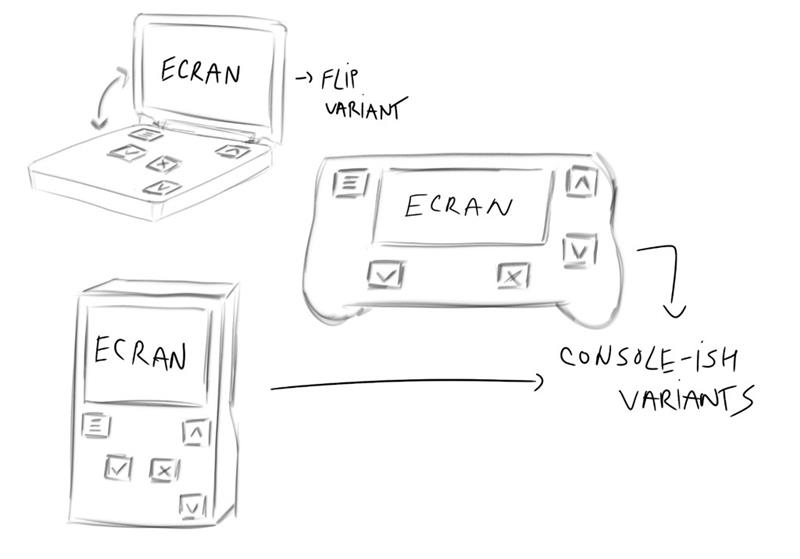 ECRAN
→ FLIP
VARIANT
ECRAN
ECRAN
CONSOLE-ISH
VARIANTS